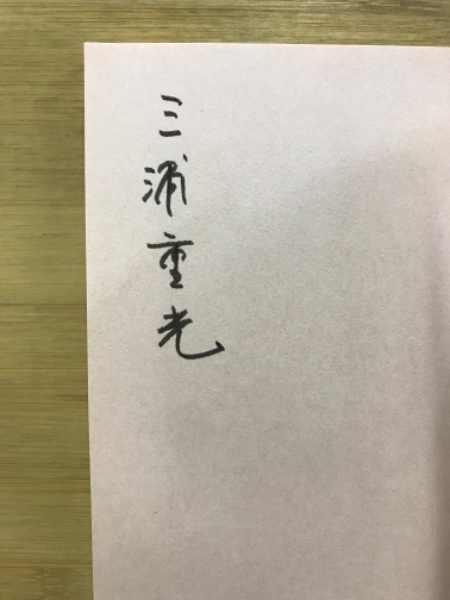 三浦重光